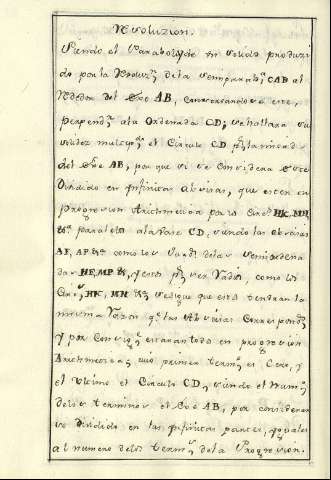 Resoluzion.
Siendo el Paraboloyde un solido produzi
do por la Revoluz.n dela semiparab.a CAB al
Rededor del Exe AB, conservandose este
perpend.r ala Ordenada CD; se hallara su
solidez multip.do el Circulo CD p.r la mitad
del Exe AB, por que si se considera este
Dividido en infinitas abscisas, que esten en
progresion Arithmetica para los Circ.s HK, MN,
&.a paralelos ala vase CD, siendo las abscisas
AF, AP &.a como los quad.s delas semiordena
das HE, MP &.a, y estos p.r ser Radios, como los
Circ.s HK, MN &.a se sigue que estos tendran la
misma Razon q.e las Abscisas Correspond.s
y por consig.te estaran todos en progresion
Arithmetica; cuio primer term.o es Cero, y
el ultimo el Circulo CD, siendo el num.o
de los terminos el Exe AB, por considerar
se dividido en las infinitas partes, yguales
al numero delos term.s dela Progresion.